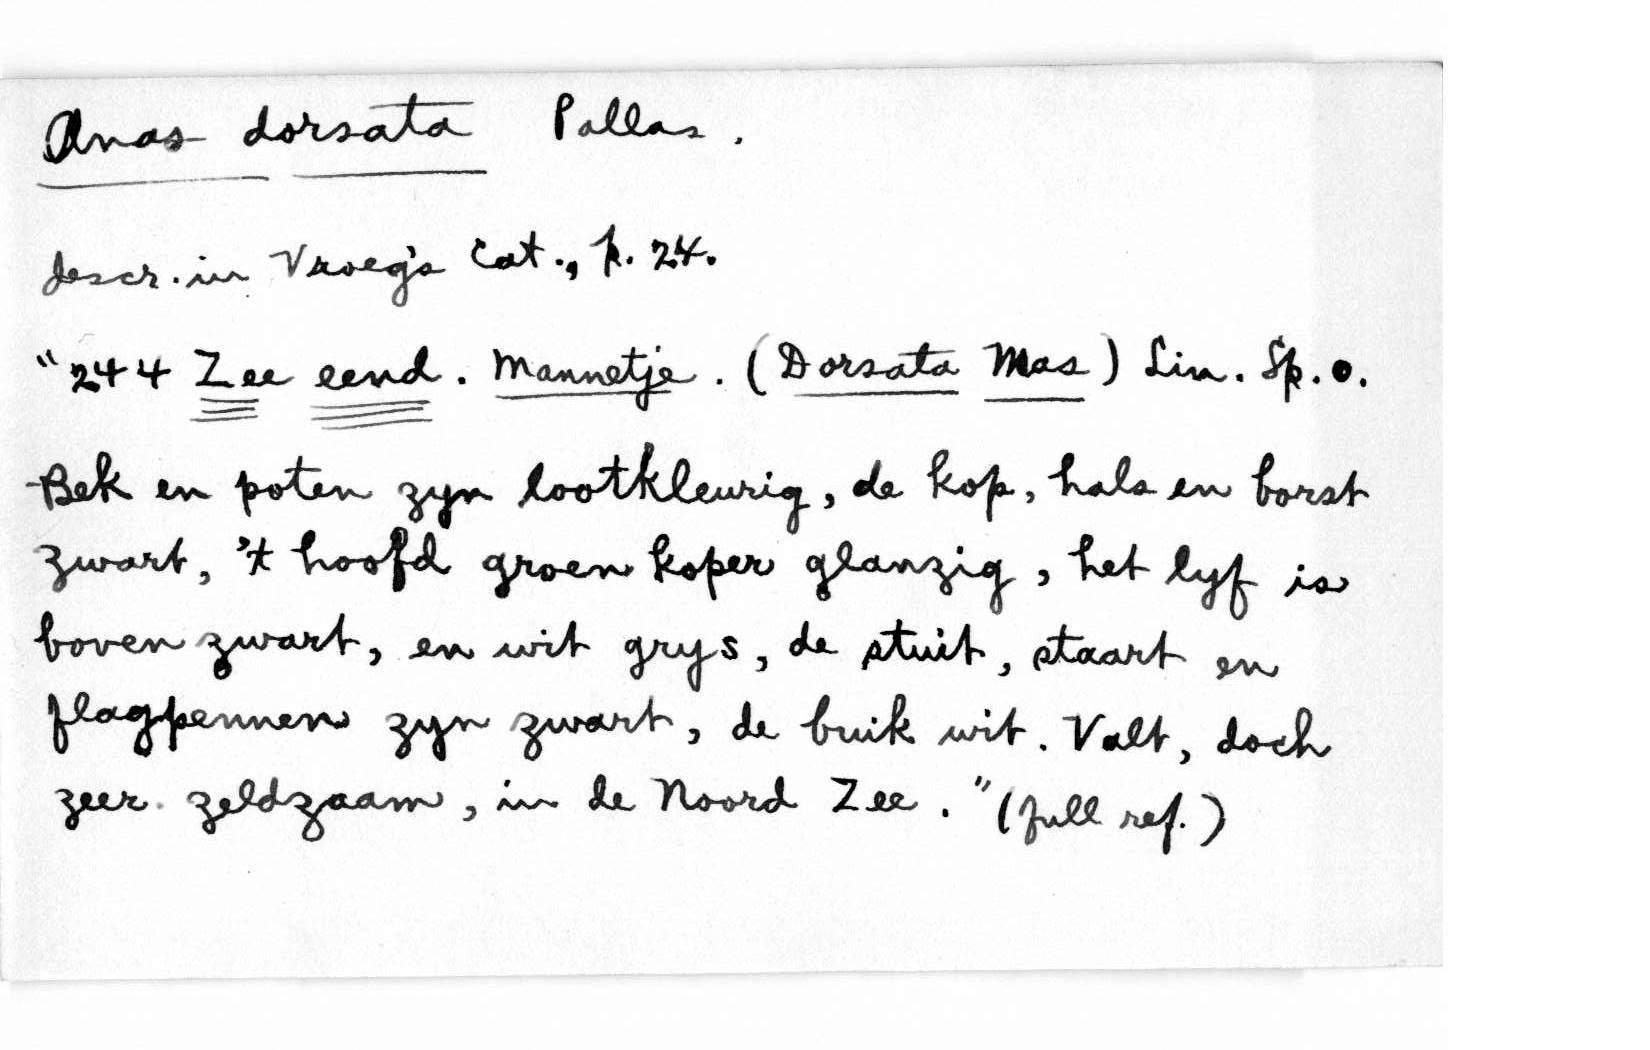 Anas dorsata Pallas.
descr. in Vroeg's Cat., p. 24.
"244 Zee eend. Mannetje. (Dorsata Mas) Lin. Sp. o.
Bek en poten zyn lootkleurig, de kop, hals en borst
zwart, 't hoofd groen koper glanzig, het lyf is
boven zwart, en wit grys, de stuit, staart en
flagpennen zyn zwart, de buik wit. Valt, doch
zeer zeldzaam, in de Noord Zee." (full ref.)